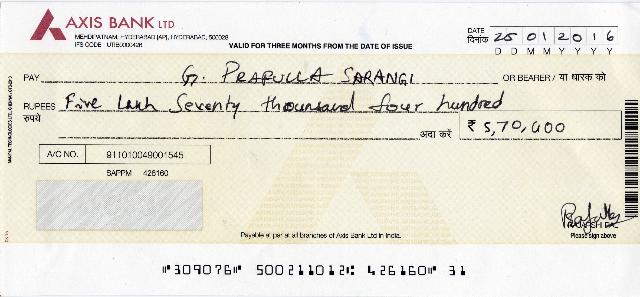 AXIS BANK LTD
MEHDIPATNAM, HYDERABAD [AP], HYDERABAD, 500028
IFS CODE : UTIB0000426
VALID FOR THREE MONTHS FROM THE DATE OF ISSUE
DATE
दिनांक 25 01 2016
D D M M Y Y Y Y
PAY G. PRAFULLA SARANGI OR BEARER / या धारक को
RUPEES Five Lakh Seventy thousand four hundred
रुपये
अदा करें ₹ 5,70,400
A/C NO. 911010049001545
SAPPM 426160
Please sign above
Payable at par at all branches of Axis Bank Ltd in India.
"309076" 500211012: 426160" 31